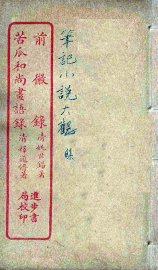 筆記小說大觀
前徽錄 清姚世錫著
苦瓜和尚畫語錄 清釋道濟著
進步書局校印